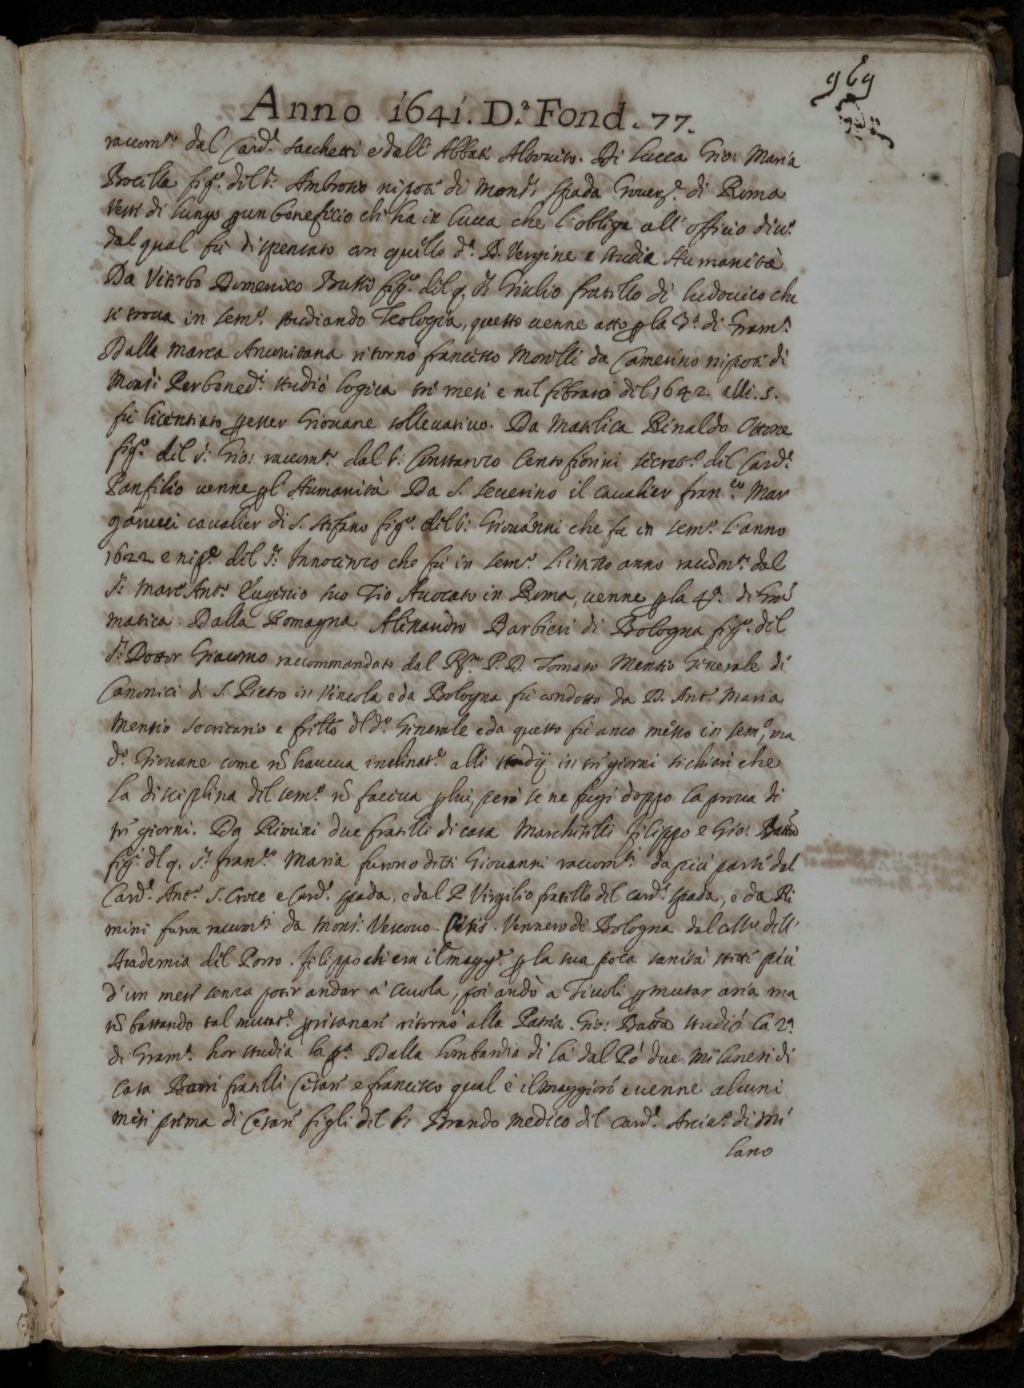 969
Anno 1641. D.ª Fond. 77.
raccom.to dal Card.e Sacchetti e dall' Abbate Di Lucca Gio: Maria
fig.o del S.r Ambrosio nipote di Mons.r Spada Gover.re di Roma
di lungo un beneficio ch' ha in Lucca che l'obliga all'officio div.o
dal qual fù dispensato con quello d.a B. Vergine e studia Humanità
Da Viterbo Domenico fig.o del q. S.r Giulio fratello di Ludovico che
si trova in sem.o studiando Teologia, questo venne atto p la 3.a di Gram.a
Dalla Marca Anconitana ritornò Francesco Morelli da Camerino nipote di
Mons.r Perbened.i studiò logica tre mesi e nel febraro del 1642. alli .5.
fù licentiato p esser Giovane sollevativo. Da Matelica Rinaldo Ottone
fig.o del S.r Gio: raccom.to dal S.r Constanzo Centofiorini secret.o del Card.e
Panfilio venne p l' Humanità Da S. Severino il Cavalier Fran.co Mar
garucci cavalier di S. Stefano fig.o del S.r Giovanni che fu in sem.o l'anno
1622 e nip.e del S.r Innocenzo che fù in sem.o l'istesso anno raccom.to dal
S.r Marc'Ant.o Eugenio suo Tio Avocato in Roma, venne p la 4.a di Gra
matica. Dalla Romagna Alessandro Barbieri di Bologna fig.o del
S.r Dottor Giacomo raccommandato dal R.mo P. D. Tomaso Mentio Generale di
Canonici di S. Pietro in Vincola e da Bologna fù condotto da D. Ant.o Maria
Mentio Secretario e frello del d.o Generale e da questo fù anco messo in sem.o, ma
d.o Giovane come nõ haveva inclinat.e alli studij in trè giorni si chiarì che
la disciplina del sem.o nõ faceva p lui, però se ne fugì doppo la prova di
trè giorni. Da Rimini due fratelli di casa Marcheselli Filippo e Gio:
fig.i del q. S.r Fran.co Maria furono detti Giovanni raccom.ti da più parti dal
Card.e Ant.o S. Croce e Card.e Spada, e dal P. Virgilio fratello del Card.e Spada, e da Ri
mini furon raccom.ti da Mons.r Vescovo. Vennero di Bologna dal coll.o dell'
Academia del Porto. Filippo ch' era il magg.e p la sua poca sanità stette più
d'un mese senza poter andar à scuola, poi andò a Tivoli p mutar aria ma
nõ bastando tal mutat.e p risanare ritornò alla Patria. Gio: Batta studiò la 2.a
di Gram.a hor studia la p.a Dalla Lombardia di là dal Pò due Milanesi di
casa fratelli Cesare e Francesco qual è il maggiore e venne alcuni
mesi prima di Cesare figli del S.r Brando medico del Card.e Arciv.o di Mi
lano